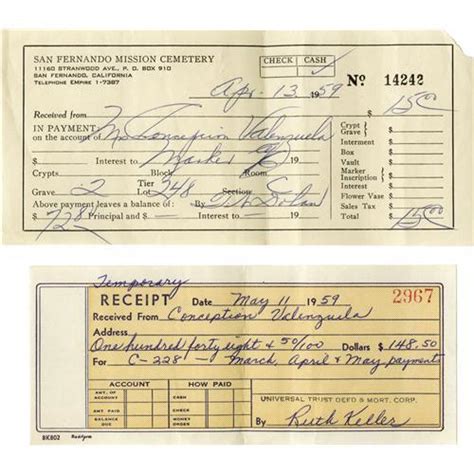 SAN FERNANDO MISSION CEMETERY
11160 STRANWOOD AVE., P. O. BOX 910
SAN FERNANDO, CALIFORNIA
TELEPHONE EMPIRE 1-7387
CHECK CASH ✓
Apr 13 1959 No 14242
Received from $ 15.00
IN PAYMENT
on the account of Mrs Conception Valenzuela
Crypt
Grave
Interment
$ Interest to Marker 19
Box
Crypts Block Row
Vault
Marker
Inscription
Grave 2 Tier Lot 248 Section C
Interest
Flower Vase
Above payment leaves a balance of: By:
Sales Tax
$ 728 Principal and — $ Interest to 19
Total $ 15.00
Temporary
RECEIPT Date May 11 1959 2967
Received From Conception Valenzuela
Address
One hundred forty eight & 50/100 Dollars $ 148.50
For C-228 — March, April & May payments
ACCOUNT HOW PAID
AMT. OF ACCOUNT CASH
AMT. PAID CHECK
BALANCE DUE MONEY ORDER
UNIVERSAL TRUST DEED & MORT. CORP.
By Ruth Keller
BK802 Rediform